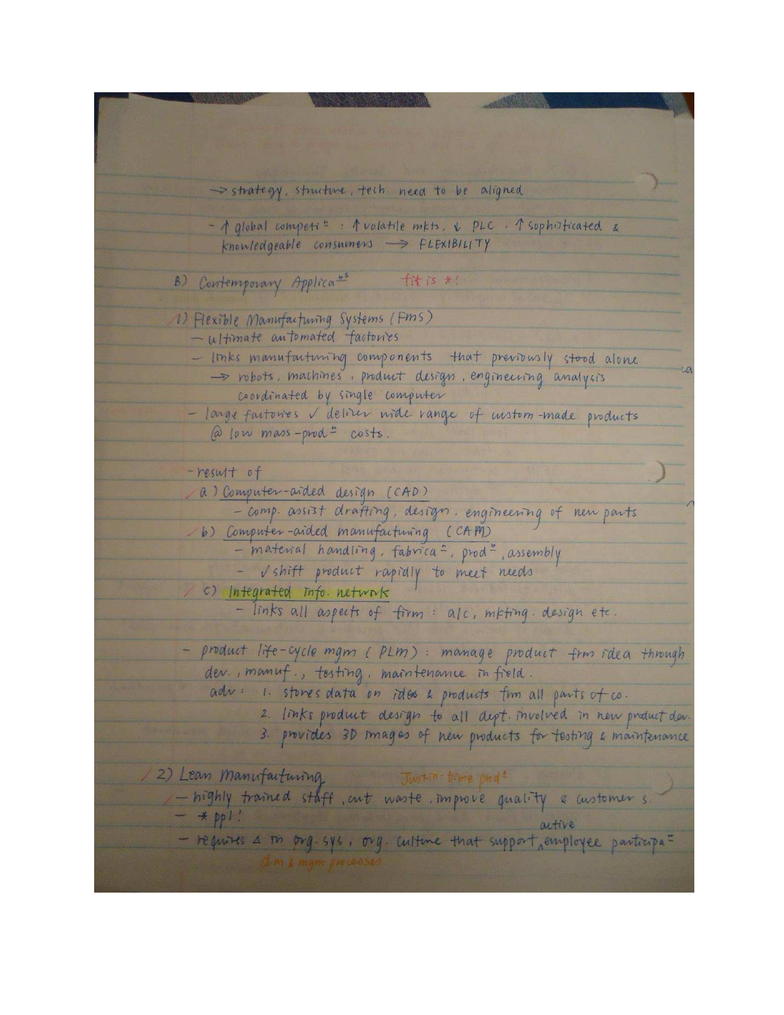 → strategy, structure, tech need to be aligned
- ↑ global competiⁿ : ↑ volatile mkts, ↓ PLC, ↑ sophisticated &
knowledgeable consumers → FLEXIBILITY
B) Contemporary Applicaⁿˢ fit is *!
1) Flexible Manufacturing Systems (FMS)
- ultimate automated factories
- links manufacturing components that previously stood alone
→ robots, machines, product design, engineering analysis
coordinated by single computer
- large factories ✓ deliver wide range of custom-made products
@ low mass-prodⁿ costs.
- result of
a) Computer-aided design (CAD)
- comp. assist drafting, design, engineering of new parts
b) Computer-aided manufacturing (CAM)
- material handling, fabricaⁿ, prodⁿ, assembly
- ✓ shift product rapidly to meet needs
c) Integrated info. network
- links all aspects of firm : a/c, mkting, design etc.
- product life-cycle mgm (PLM) : manage product frm idea through
dev., manuf., testing, maintenance in field.
adv: 1. stores data on ideas & products frm all parts of co.
2. links product design to all dept. involved in new product dev.
3. provides 3D images of new products for testing & maintenance
2) Lean Manufacturing Just-in-time prodⁿ
- highly trained staff, cut waste, improve quality & customer s.
- * ppl!
active
- requires Δ in org. sys, org. culture that support ^ employee participaⁿ
& mgm processes